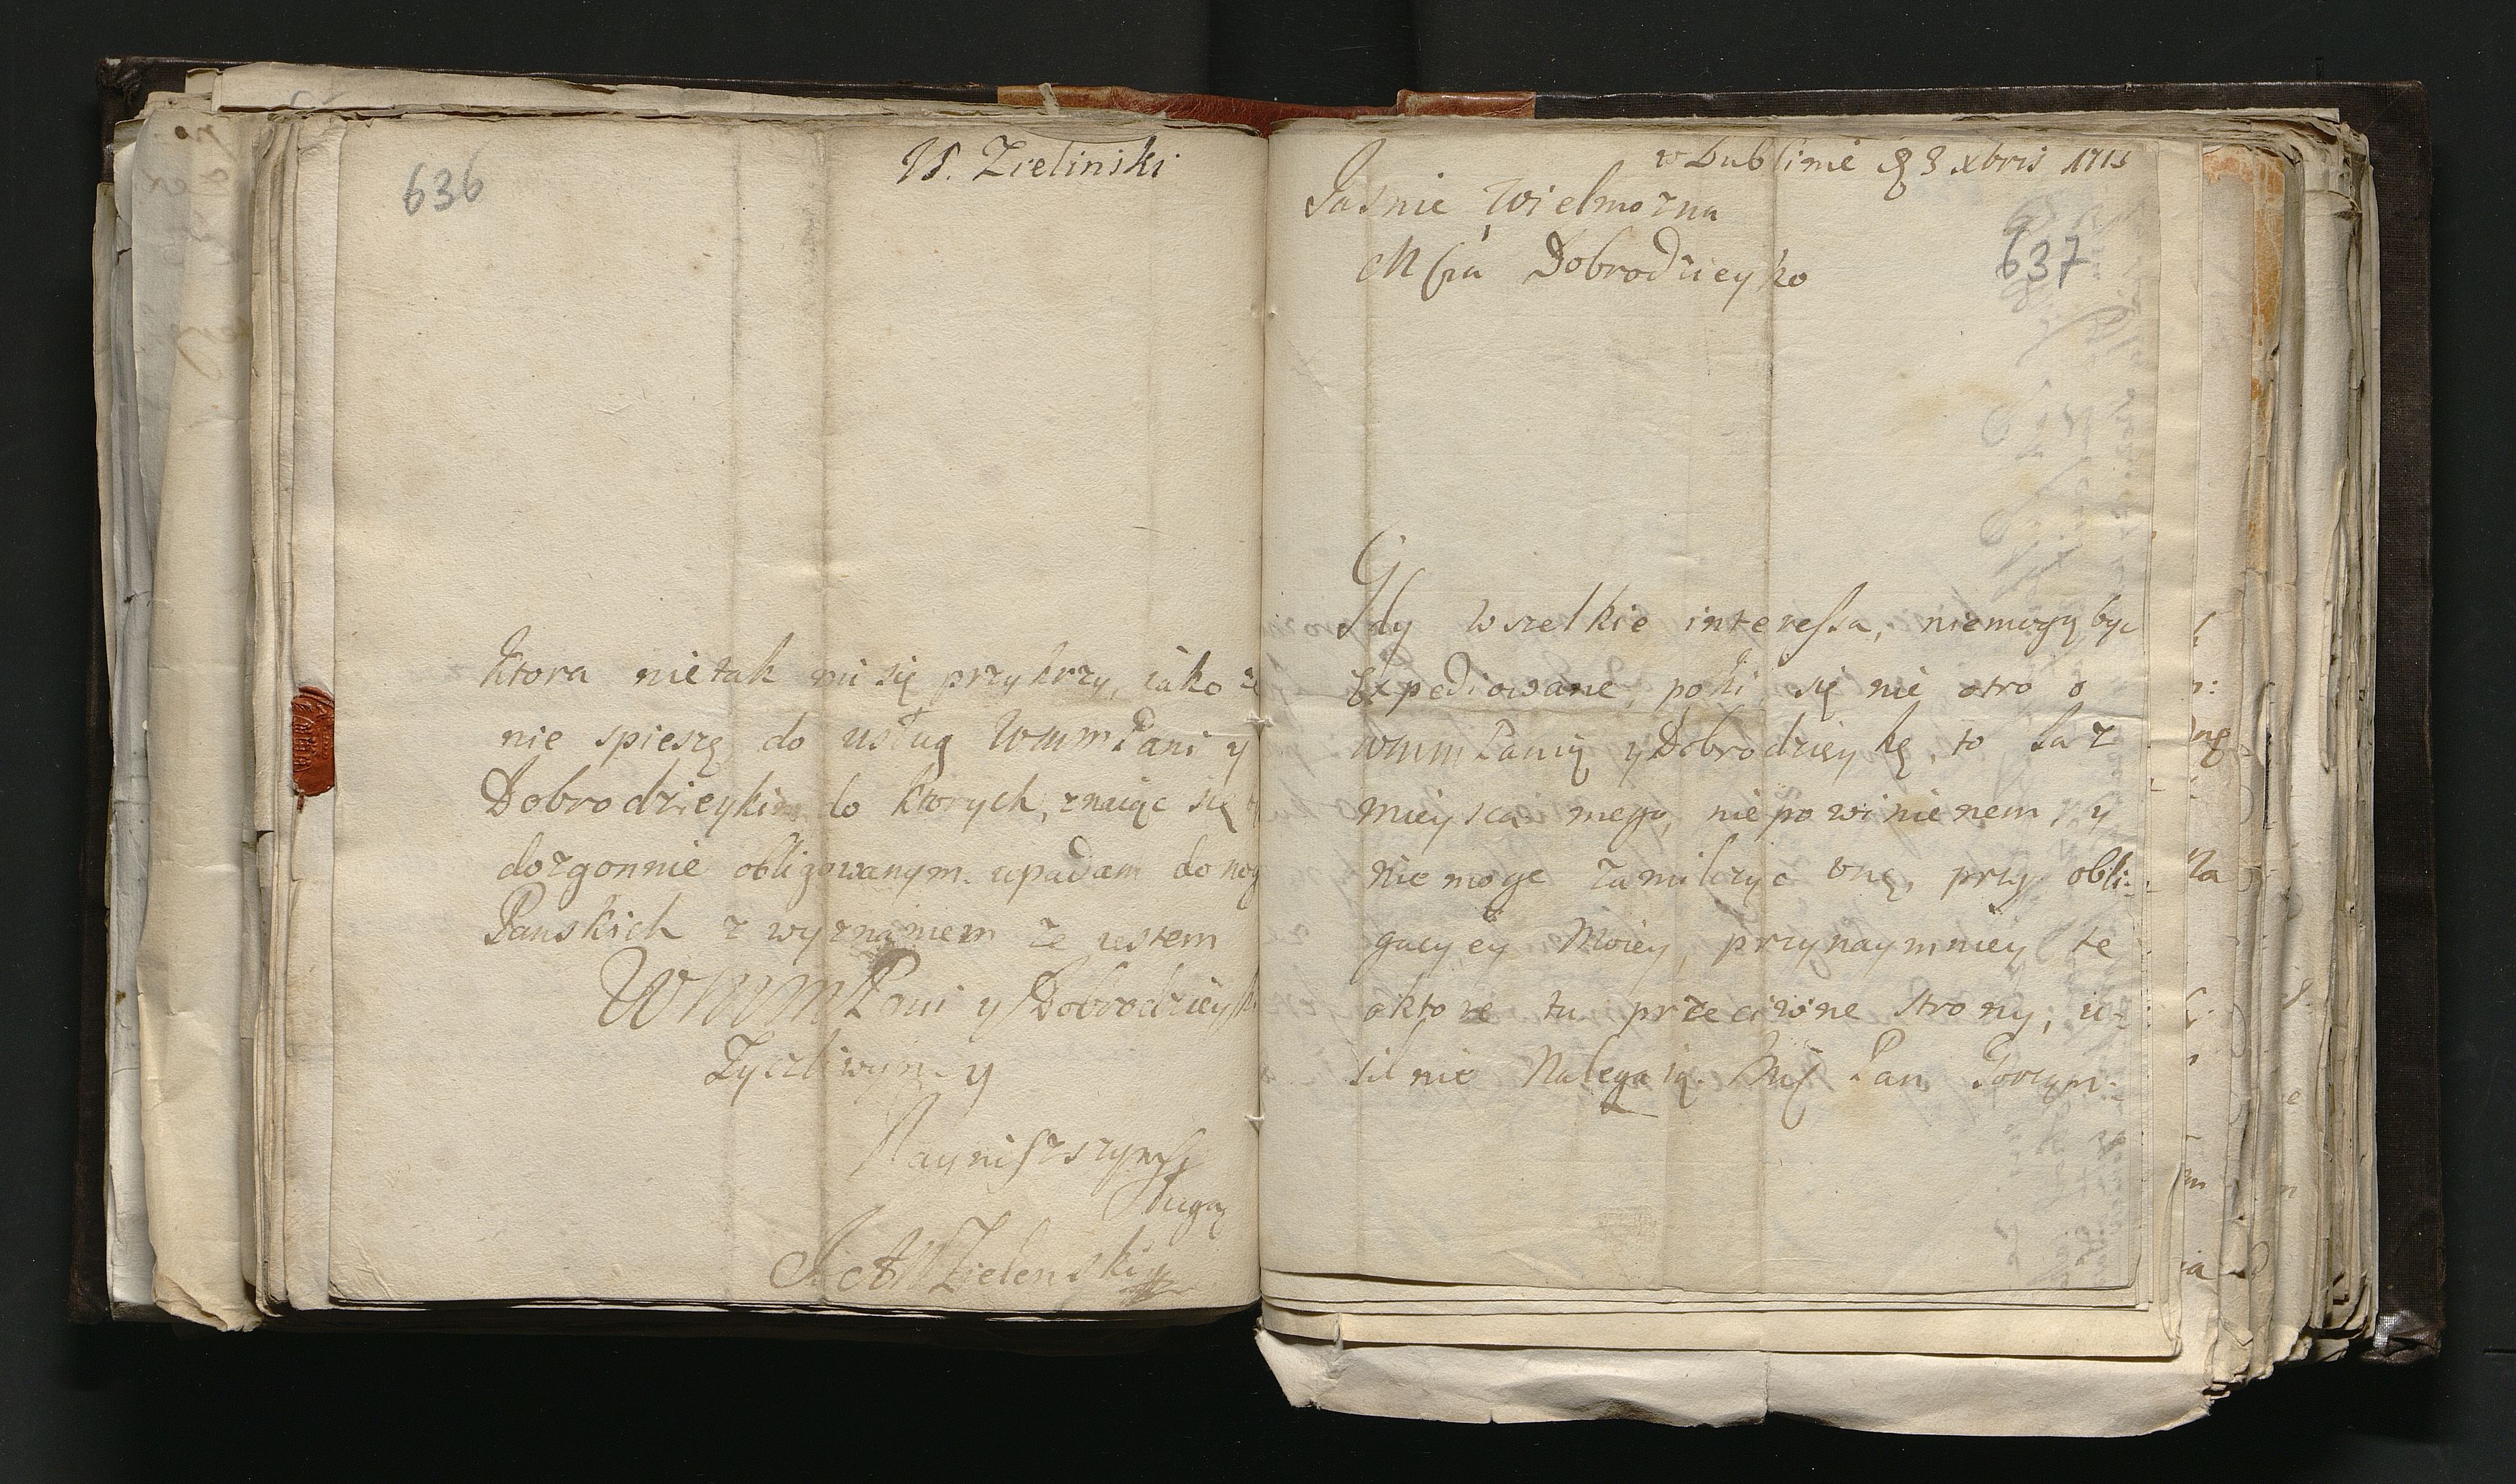 636
Zielinski
ktora nie tak mi się przykrzy, iako że
nie spieszę do usług WMM Pani y
Dobrodzieyki do ktorych, znaiąc się
dozgonnie obligowanym upadam do nog
Panskich z wyznaniem że iestem
WMM Pani y Dobrodzieyki
Zyczliwym y
Nayniższym
Sługą
Zielenski
w Lublinie 3 xbris 1713
Jasnie Wielmozna
Mscia Dobrodzieyko
637
Gdy wszelkie interessa, niemogą byc
Expediowane, poki się nie otro o
WMM Panią y Dobrodzieykę, to Ia z
mieysca mego, niepowinienem, y
niemogę zamilczyc one, przy obli-
gacyey Moiey, przynaymniey te
oktore tu przeciwne strony, u-
silnie Nalegaią. Pan